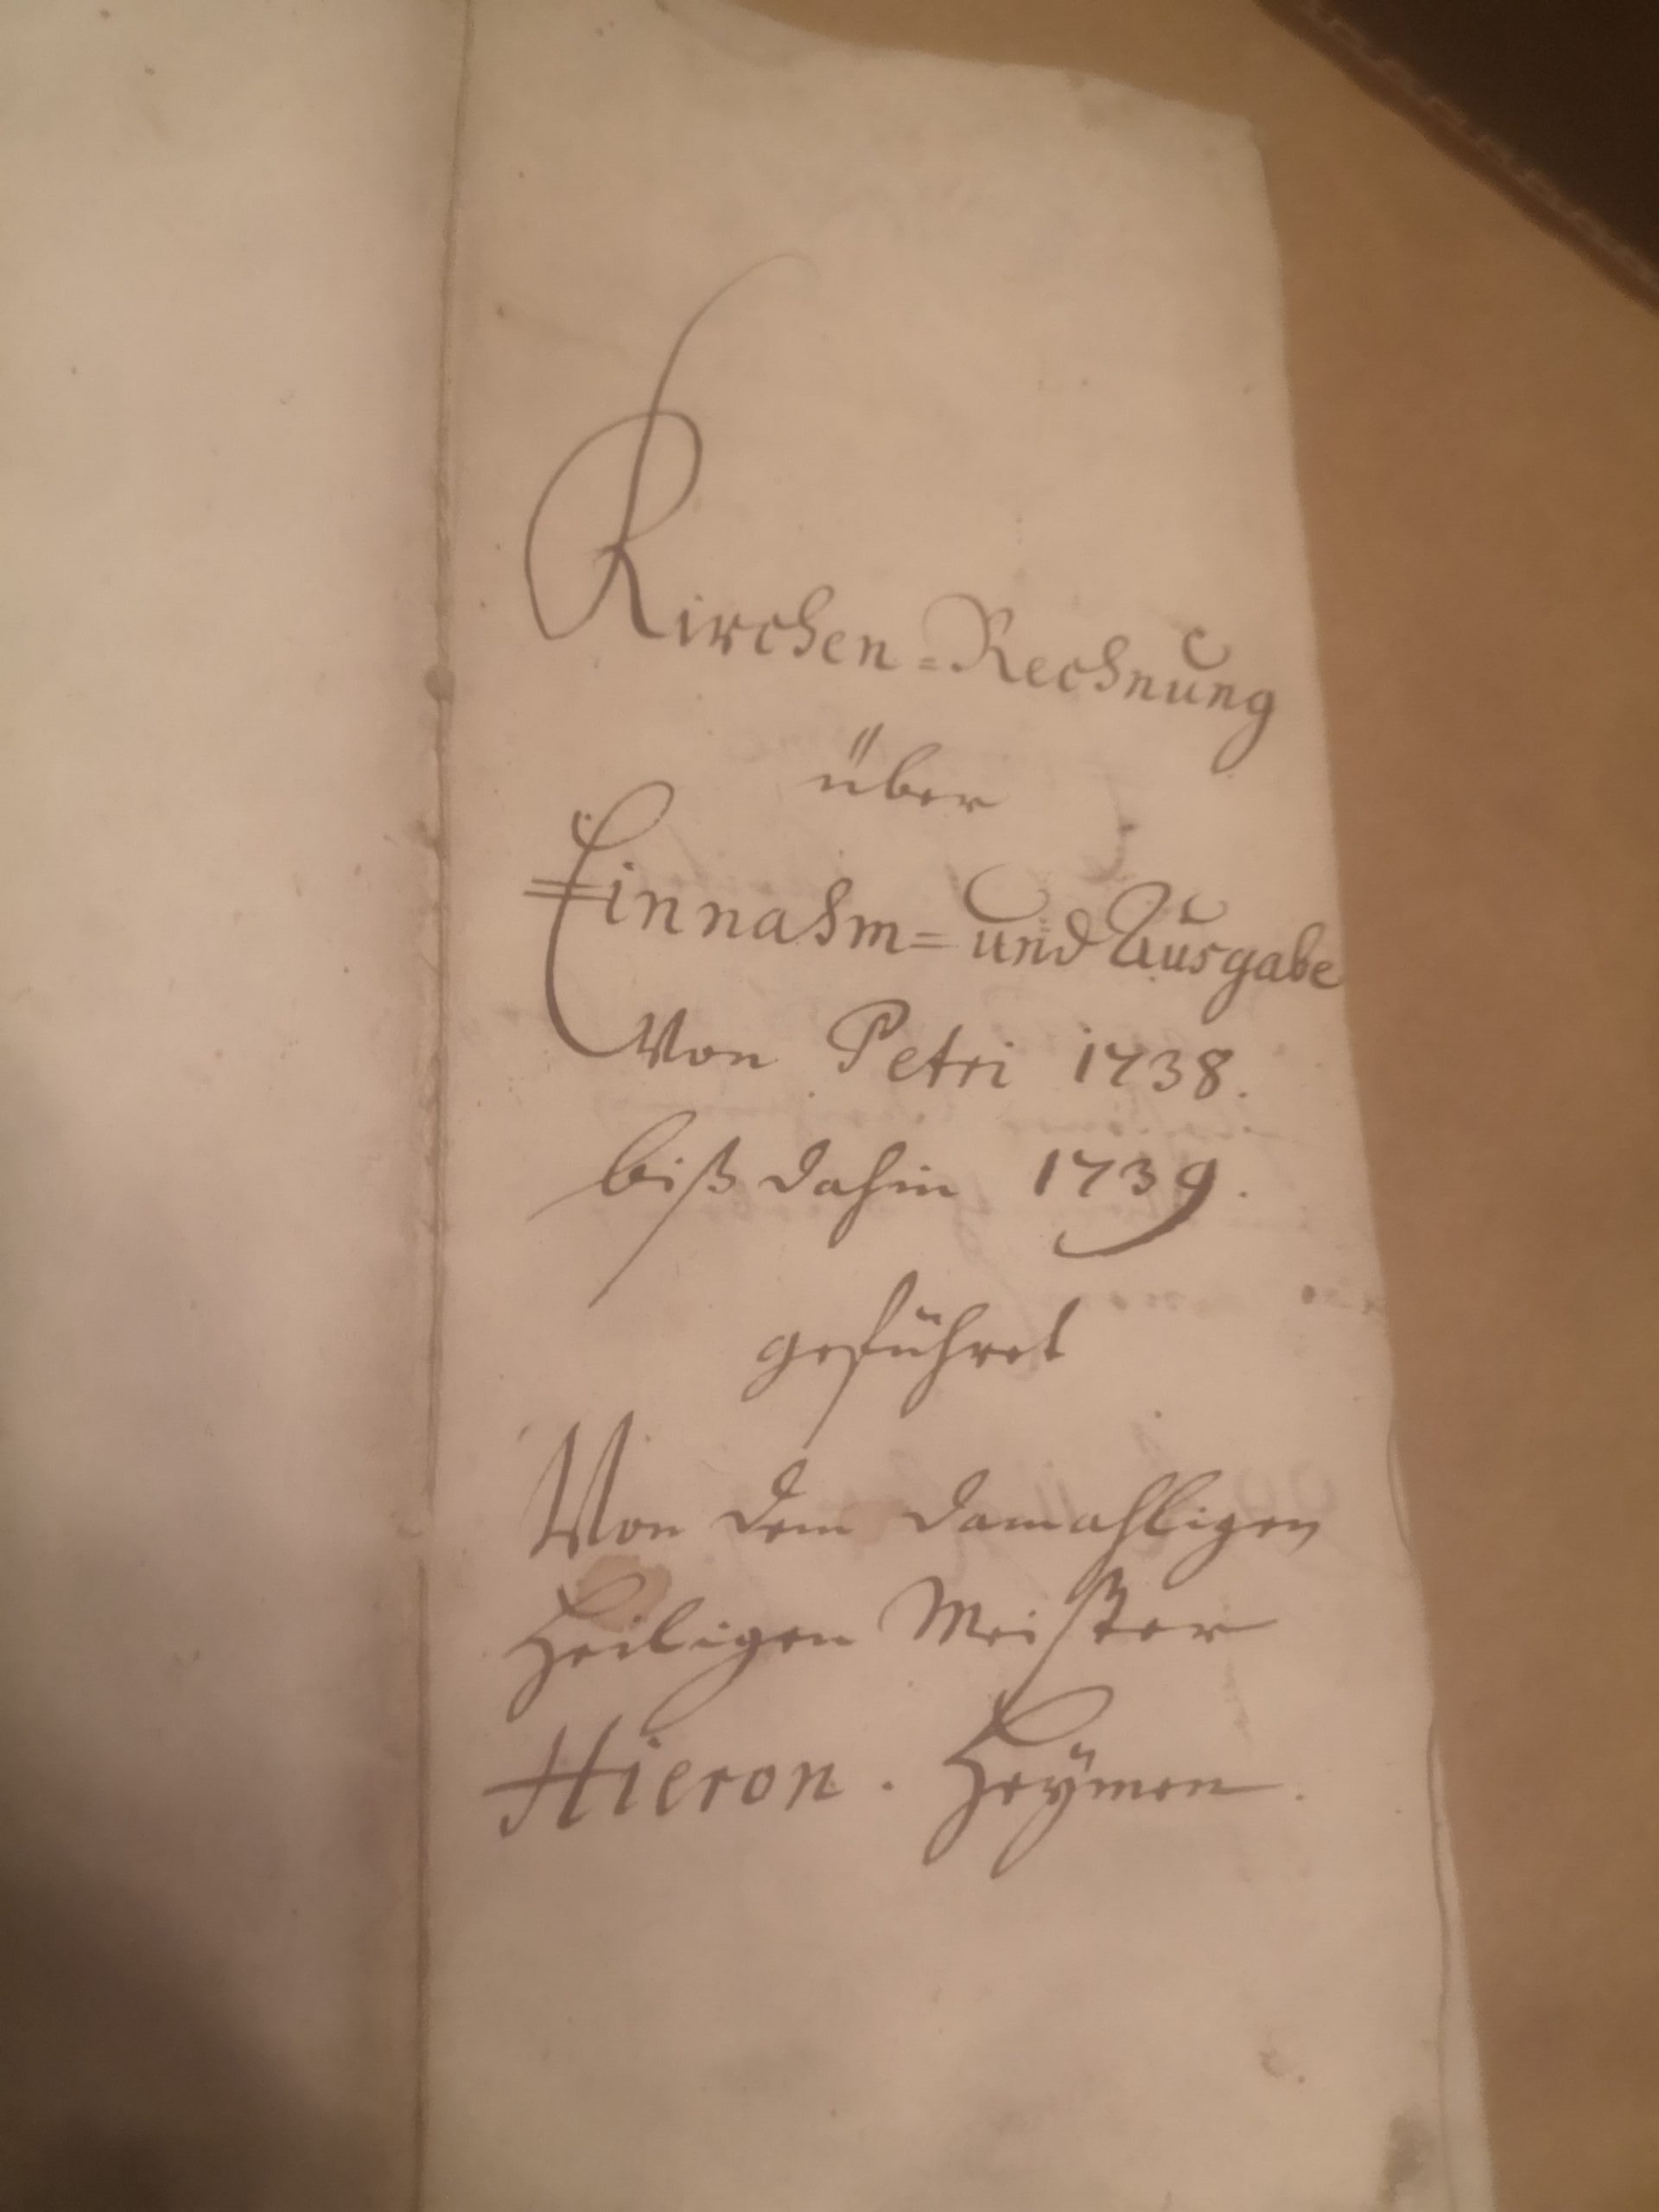 Kirchen=Rechnung
über
Einnahm= und Ausgabe
Von Petri 1738.
biß dahin 1739.
geführet
Von dem damahligen
Heiligen Meister
Hieron. Heÿmen.